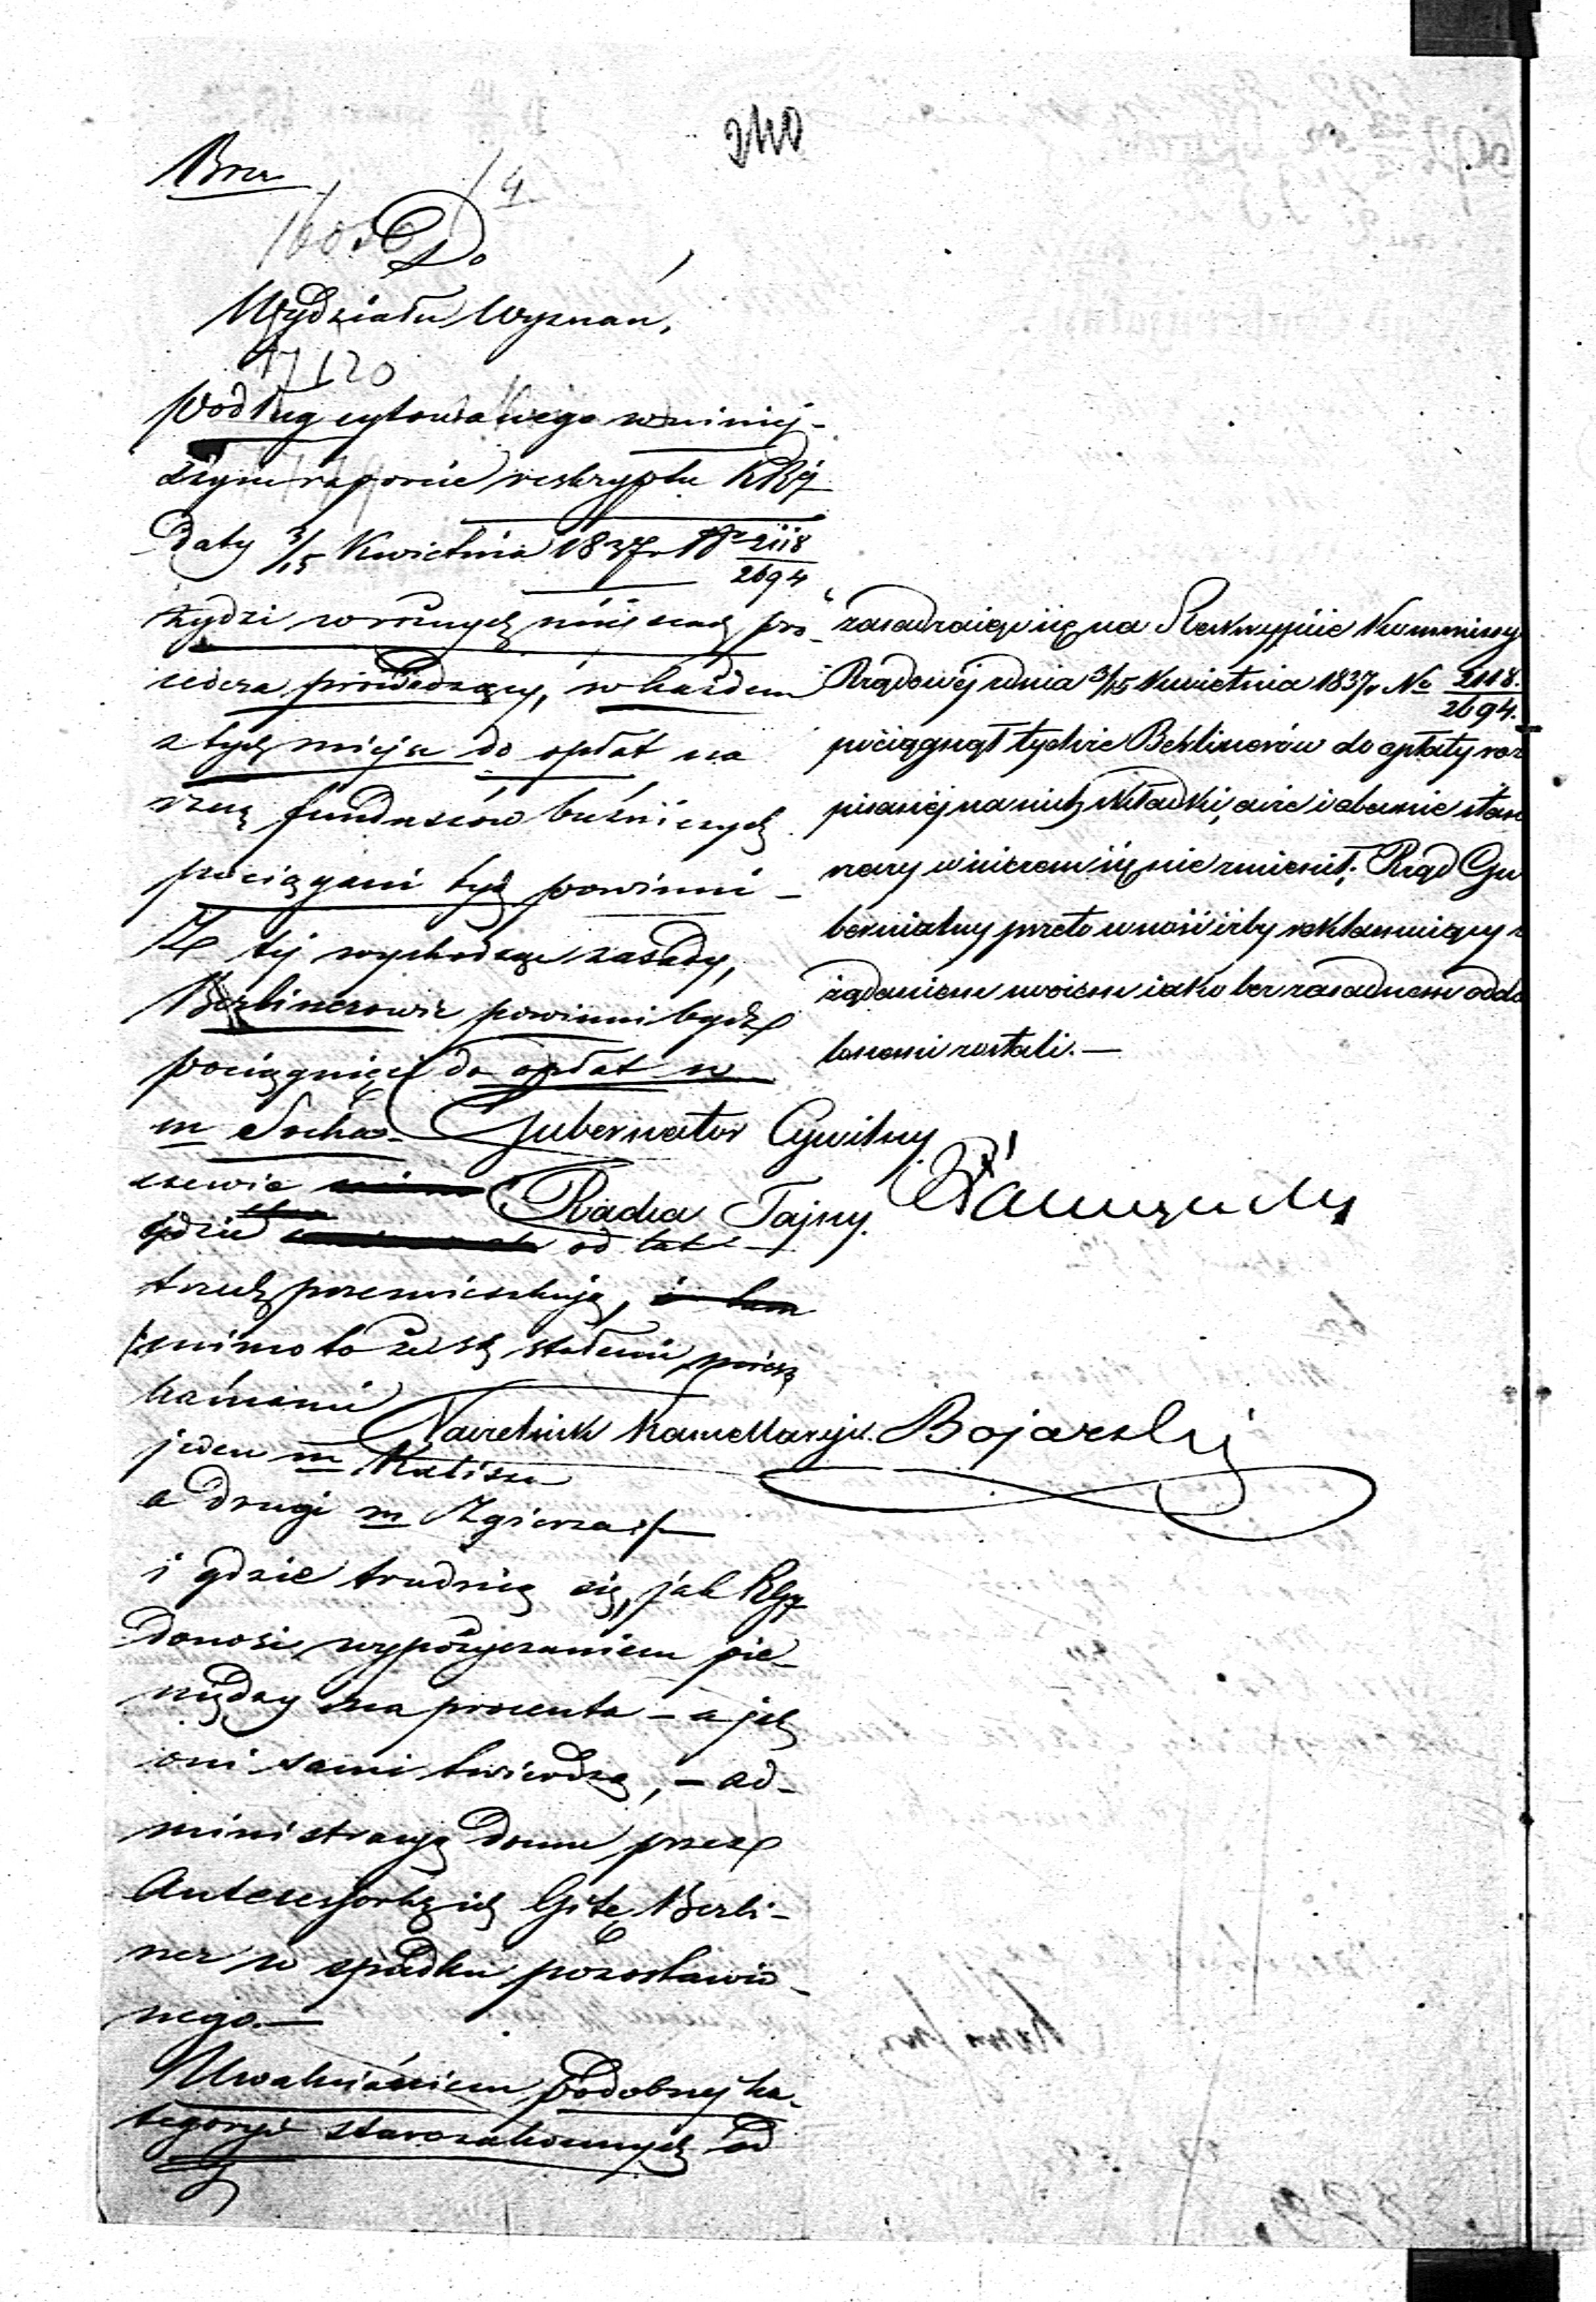 240
Bra
4
160
Do
Wydziału Wyznań,
17120
Podług cytowanego w niniej-
szym raporcie reskryptu KRz
daty 3/15 Kwietnia 1837 r. N° 2118/2694
żydzi w różnych miejscach pro-
cedera prowadzący, w każdem
z tych miejsc do opłat na
rzecz funduszów bużniczych
pociągani być powinni –
Z tej wychodząc zasady,
Berlinerowie powinni bydź
pociągnięci do opłat w
m Socha-
czewie
gdzie od lat
trzech przemieszkują,
mimo to że są stałemi miesz
kańcami
jeden m Kalisza
a drugi m Zgierza
i gdzie trudnią się, jak RGy
donosi, wypożyczaniem pie-
niędzy na procenta – a jak
oni sami twierdzą, – ad-
ministracyą domu przez
Antecessorkę ich Gitę Berli-
ner w spadku pozostawio-
nego. –
Uwalnianiem podobnej ka-
tegoryi starozakonnych od
zasadzaiąc się na Reskrypcie Kommissyi
Rządowej z dnia 3/15 Kwietnia 1837 r. No 2118./2694.
pociągnął tychże Berlinerów do opłaty roz
pisanej na nich składki, a że i obecnie stan
rzeczy w niczem się nie zmienił; Rząd Gu
bernialny przeto wnosi iżby reklamuiący z
żądaniem swoiem iako bezzasadnem odda
lonemi zostali. –
Gubernator Cywilny
Radca Tajny.
Naczelnik Kancellaryi. Bojarski